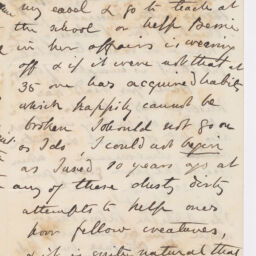 my easel & go to teach at
the school or help Bessie
in her affairs is, wearing
off & if it were not that at
35 one has acquired habits
which happily cannot be
broken I should not go on
as I do, I could not begin
as I used 10 years ago at
any of these dusty dirty
attempts to help ones
poor fellow creatures,
& it is quite natural that